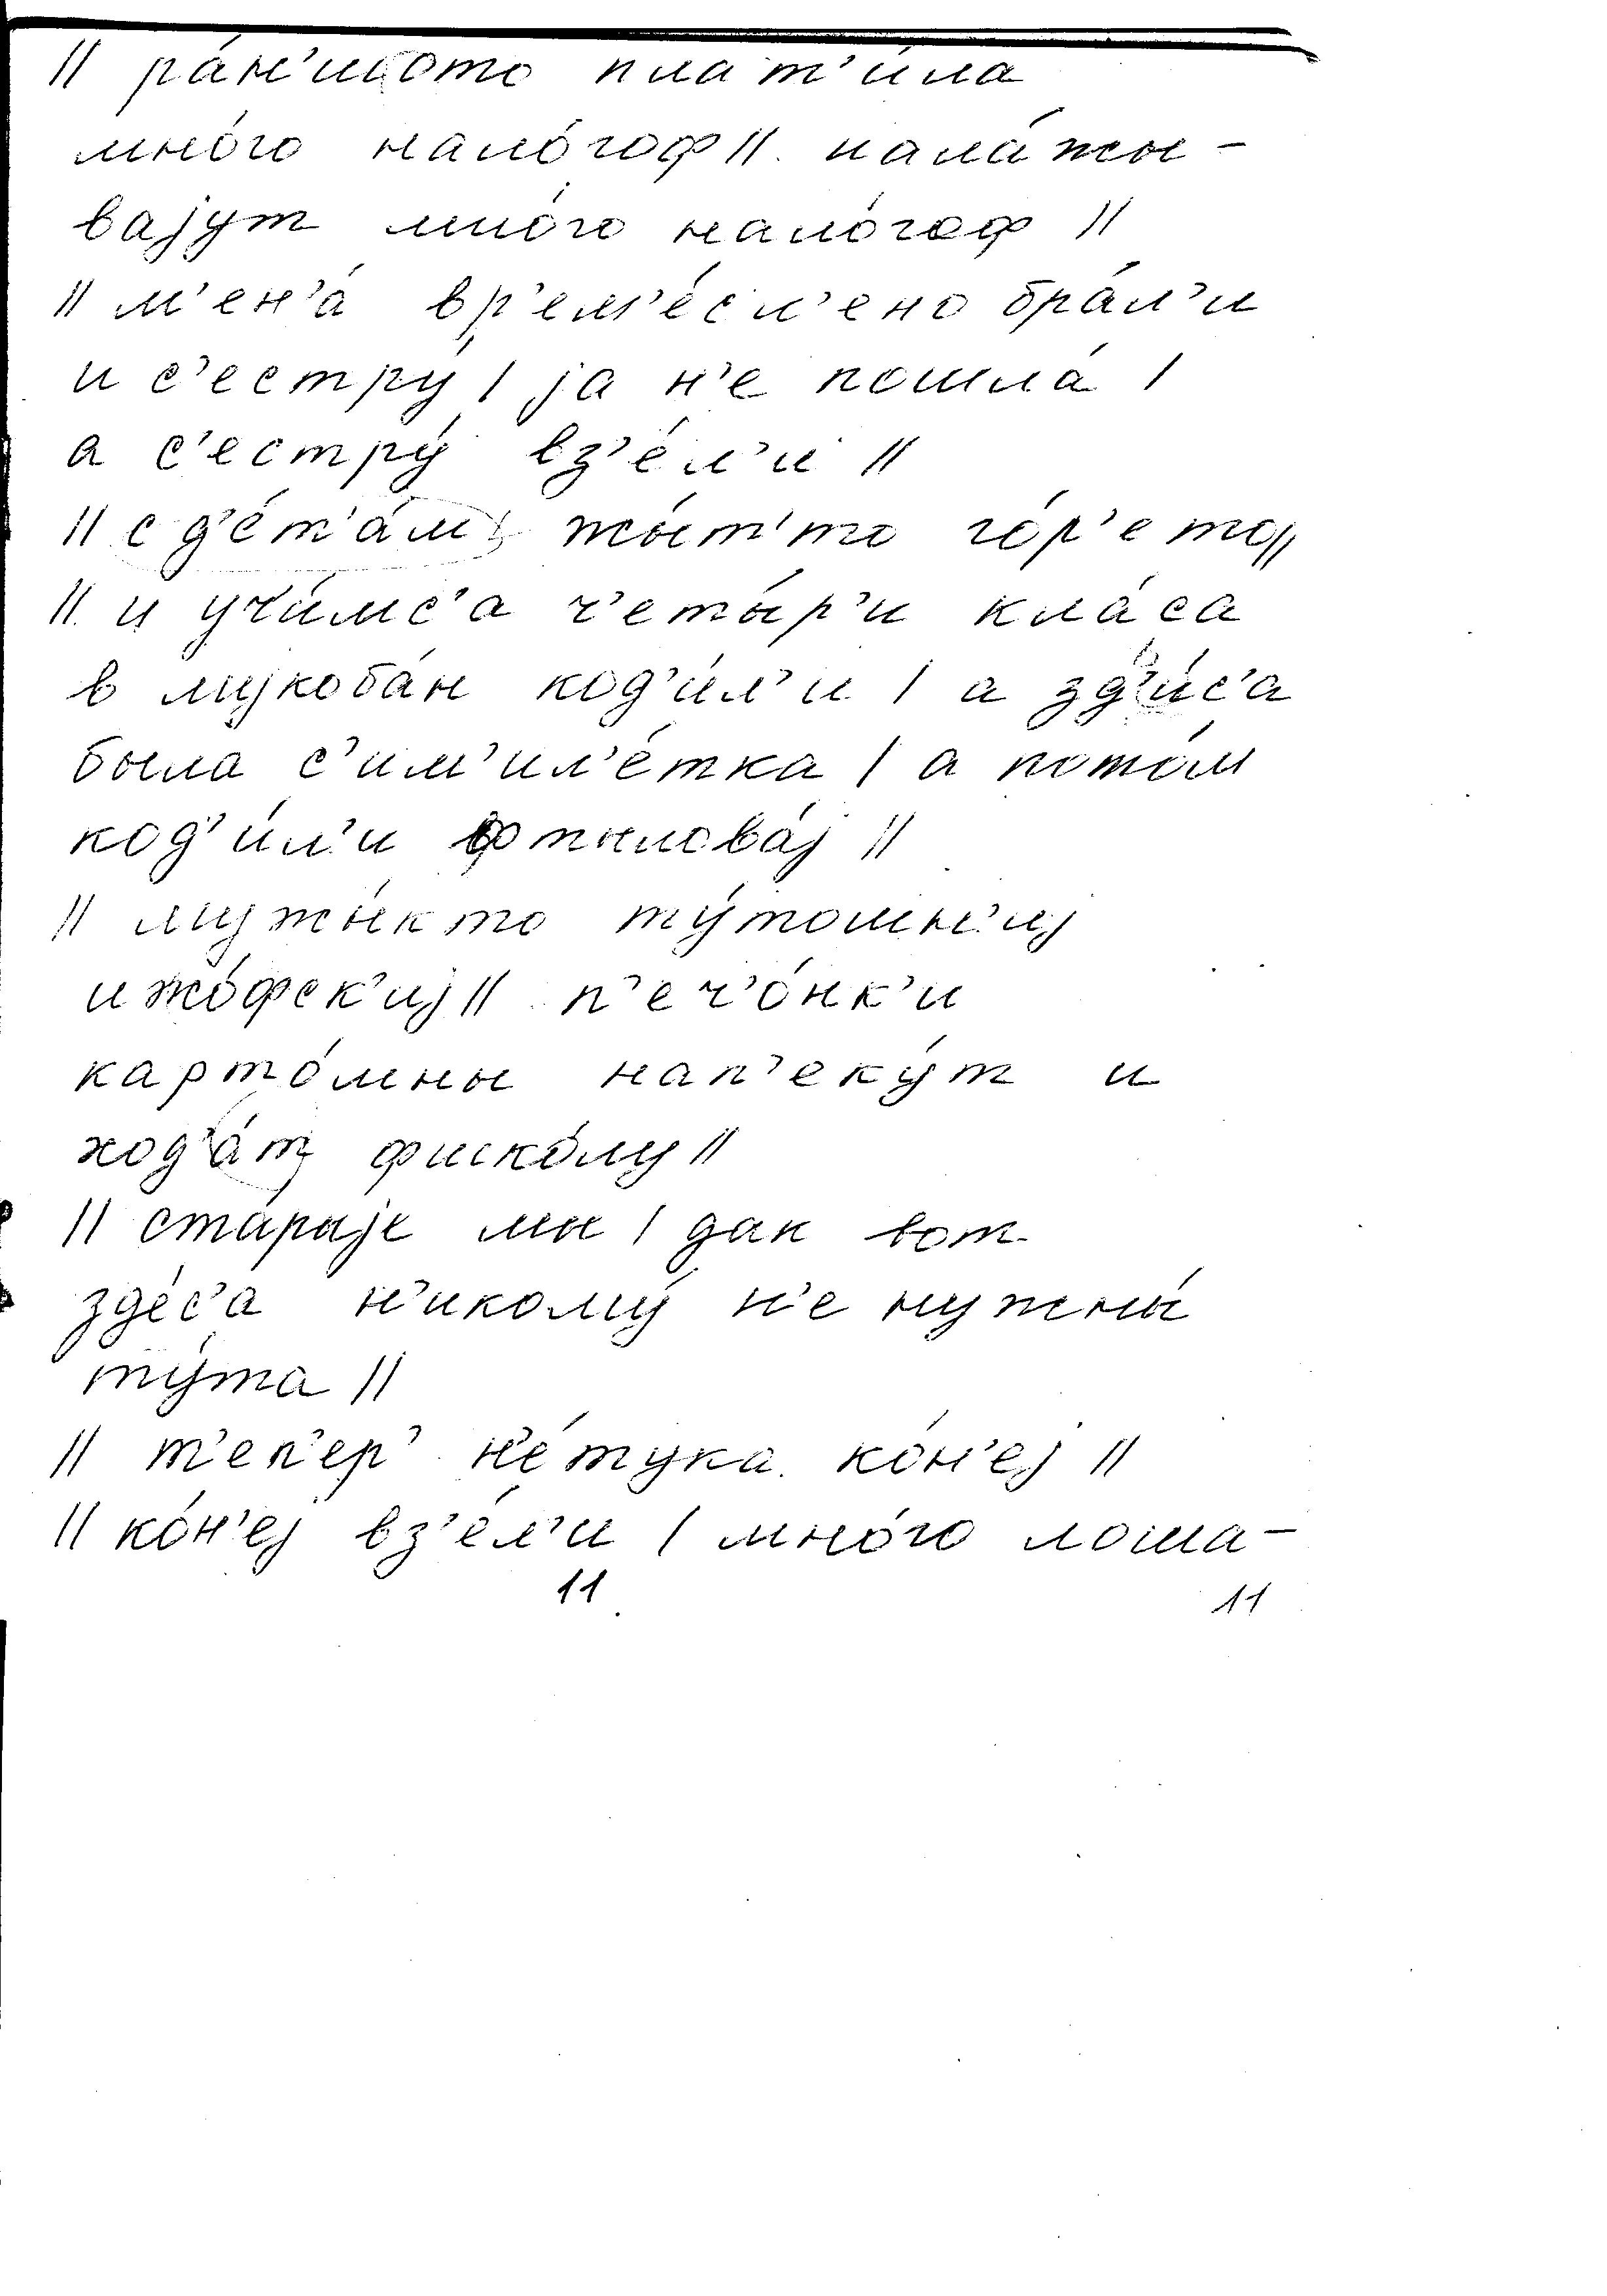 || ра́н'шото плат'и́ла
мно́го нало́гоф || нала́жы-
вајут мно́го нало́гоф ||
|| м'ен'а́ вр'ем'е́сл'ено бра́л'и
и с'естру́ | ја н'е пошла́ |
а с'естру́ вз'е́л'и ||
|| с д'е́т'а́м' жы́т'то го́р'ето ||
|| и учи́лс'а ч'еты́р'и кла́са
в лукоба́н ход'и́л'и | а зд'и́с'а
была с'им'ил'е́тка | а пото́м
ход'и́л'и ф пылова́ј ||
|| мужы́кто ту́тошн'иј
ижо́фск'иј || п'еч'о́нк'и
карто́шны нап'еку́т и
ход'а́т фшко́лу ||
|| ста́рије мы | дак вот
зде́с'а н'икому́ н'е нужны́
ту́та ||
|| т'еп'ер' н'е́тука ко́н'еј ||
|| ко́н'еј вз'е́л'и | мно́го лоша-
11
11